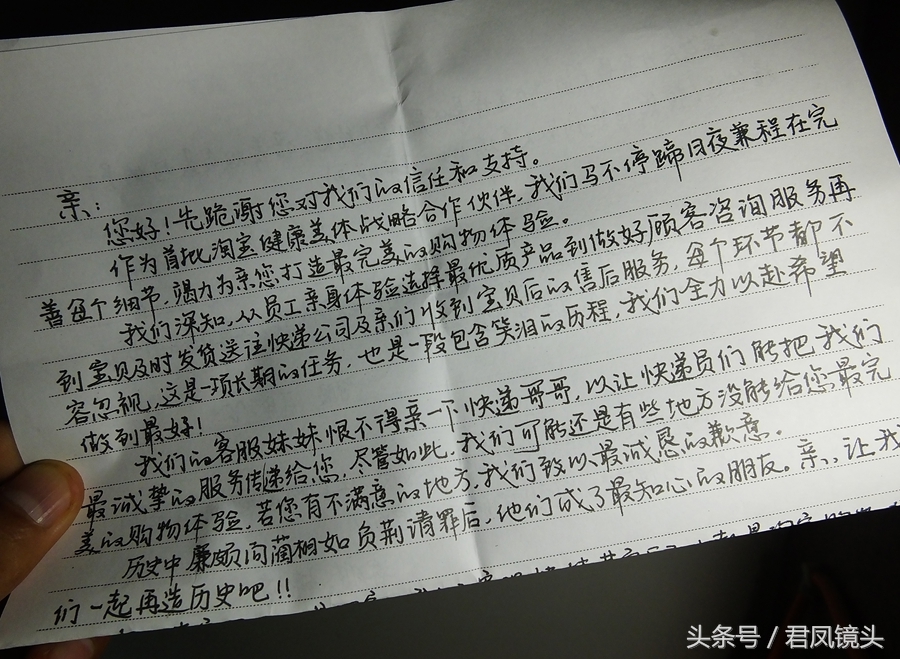 亲：
您好！先跪谢您对我们的信任和支持。
作为首批淘宝健康美体战略合作伙伴，我们马不停蹄日夜兼程在完
善每个细节，竭力为亲您打造最完美的购物体验。
我们深知，从员工亲身体验选择最优质产品到做好顾客咨询服务再
到宝贝及时发货送往快递公司及亲们收到宝贝后的售后服务，每个环节都不
容忽视，这是一项长期的任务，也是一段包含笑泪的历程，我们全力以赴希望
做到最好！
我们的客服妹妹恨不得亲一下快递哥哥，以让快递员们能把我们
最诚挚的服务传递给您，尽管如此，我们可能还是有些地方没能给您最完
美的购物体验，若您有不满意的地方，我们致以最诚恳的歉意。
历史中廉颇向蔺相如负荆请罪后，他们成了最知心的朋友。亲，让我
们一起再造历史吧！！
头条号 / 君凤镜头